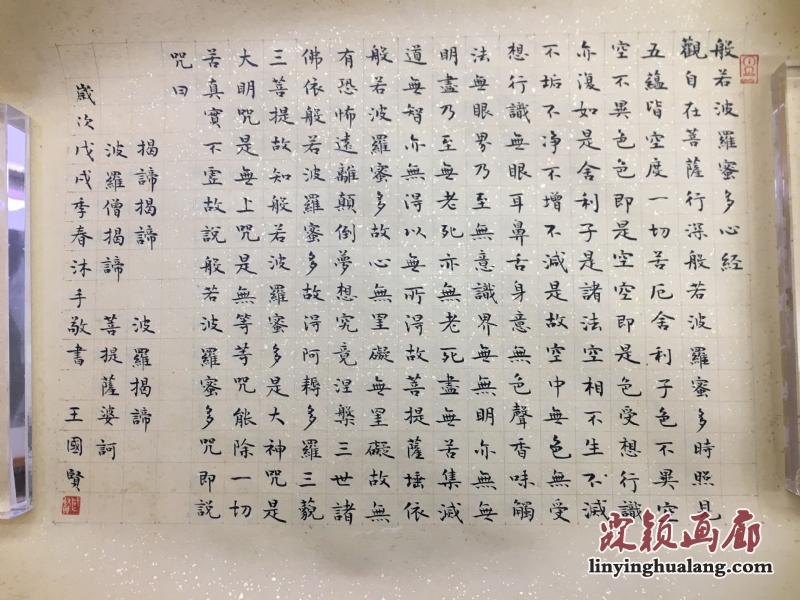 般若波羅蜜多心経
觀自在菩薩行深般若波羅蜜多時照見
五蘊皆空度一切苦厄舍利子色不異空
空不異色色即是空空即是色受想行識
亦復如是舍利子是諸法空相不生不滅
不垢不淨不增不減是故空中無色無受
想行識無眼耳鼻舌身意無色聲香味觸
法無眼界乃至無意識界無無明亦無無
明盡乃至無老死亦無老死盡無苦集滅
道無智亦無得以無所得故菩提薩埵依
般若波羅蜜多故心無罣礙無罣礙故無
有恐怖遠離顛倒夢想究竟涅槃三世諸
佛依般若波羅蜜多故得阿耨多羅三藐
三菩提故知般若波羅蜜多是大神咒是
大明咒是無上咒是無等等咒能除一切
苦真實不虛故說般若波羅蜜多咒即說
咒曰
揭諦揭諦 波羅揭諦
波羅僧揭諦 菩提薩婆訶
歲次戊戌季春沐手敬書 王國賢
霖颖画廊
linyinghualang.com